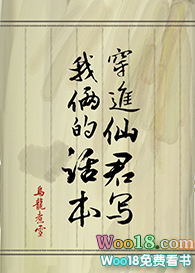 穿進仙君写
我俩的话本
烏龍煮雪
Woo18.com
Woo18免费看书